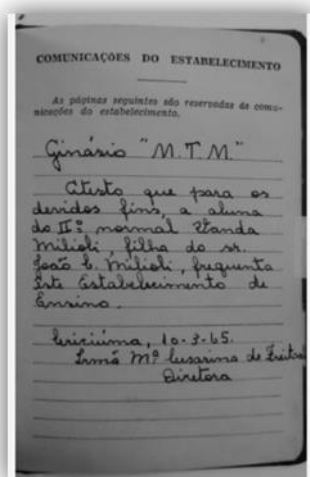 COMUNICAÇÕES DO ESTABELECIMENTO
As páginas seguintes são reservadas às comu-
nicações do estabelecimento.
Ginásio "M.T.M."
Atesto que para os
devidos fins, a aluna
do IIº normal Vanda
Milioli, filha do sr.
João C. Milioli, frequenta
êste Estabelecimento de
Ensino.
Criciúma, 10-3-65.
Irmã Mª Cesarina de Freitas
Diretora